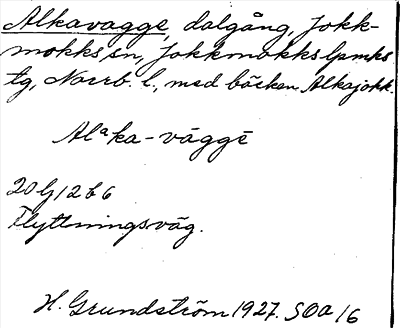 Alkavagge, dalgång, Jokk-
mokks sn, Jokkmokks lpmks
tg, Norrb. l., med bäcken Alkajokk.
Alᵃka-vággē
20 G/2 b 6
Flyttningsväg.
H. Grundström 1927. SOA 16